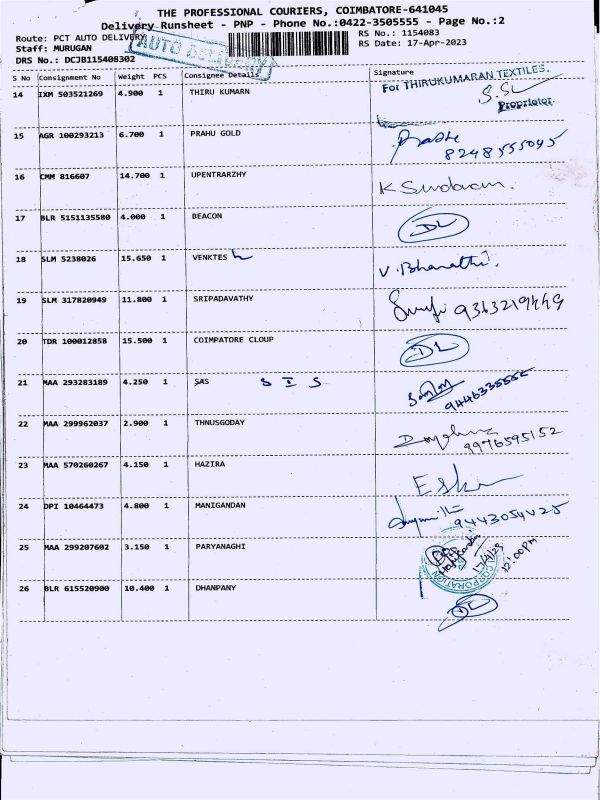 THE PROFESSIONAL COURIERS, COIMBATORE-641045
Delivery Runsheet - PNP - Phone No.:0422-3505555 - Page No.:2
Route: PCT AUTO DELIVERY
RS No.: 1154083
Staff: MURUGAN
RS Date: 17-Apr-2023
DRS No.: DCJB115408302
AUTO DELIVERY
S No Consignment No Weight PCS Consignee Details Signature
14 IXM 503521269 4.900 1 THIRU KUMARN
For THIRUKUMARAN TEXTILES.
Proprietor
15 AGR 100293213 6.700 1 PRAHU GOLD
8248555045
16 CMM 816607 14.700 1 UPENTRARZHY K Sundaram.
17 BLR 5151135580 4.000 1 BEACON DL
18 SLM 5238026 15.650 1 VENKTES h V. Bharathi.
19 SLM 317820949 11.800 1 SRIPADAVATHY 9363219449
20 TDR 100012858 15.500 1 COIMPATORE CLOUP DL
21 MAA 293283189 4.250 1 SAS S I S
9446335552
22 MAA 299962037 2.900 1 THNUSGODAY
9976595152
23 MAA 570260267 4.150 1 HAZIRA
24 DPI 10464473 4.800 1 MANIGANDAN 9443054425
25 MAA 299207602 3.150 1 PARYANAGHI
17/4/23
12:00PM
CORPORATION
26 BLR 615520900 10.400 1 DHANPANY
DL